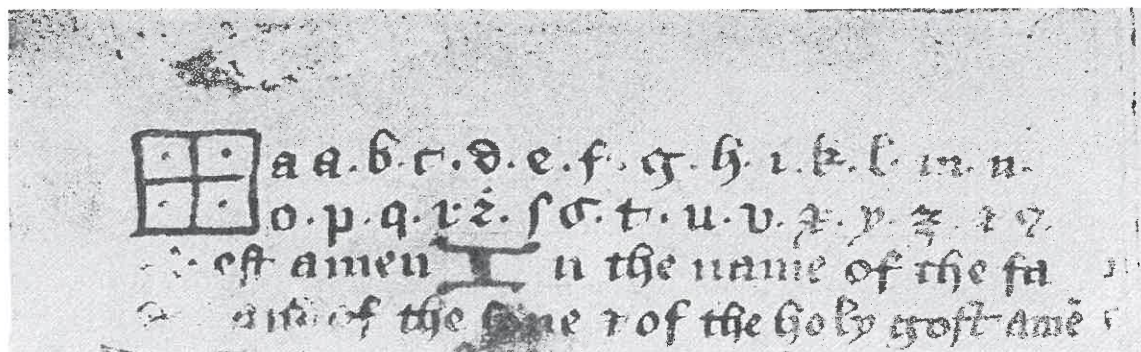 a a . b . c . d . e . f . g . h . i . k . l . m . n .
o . p . q . r ꝛ . ſ s . t . u . v . x . y . z . ⁊ ꝯ
est amen In the name of the fa
and of the sone ⁊ of the holy gost amē